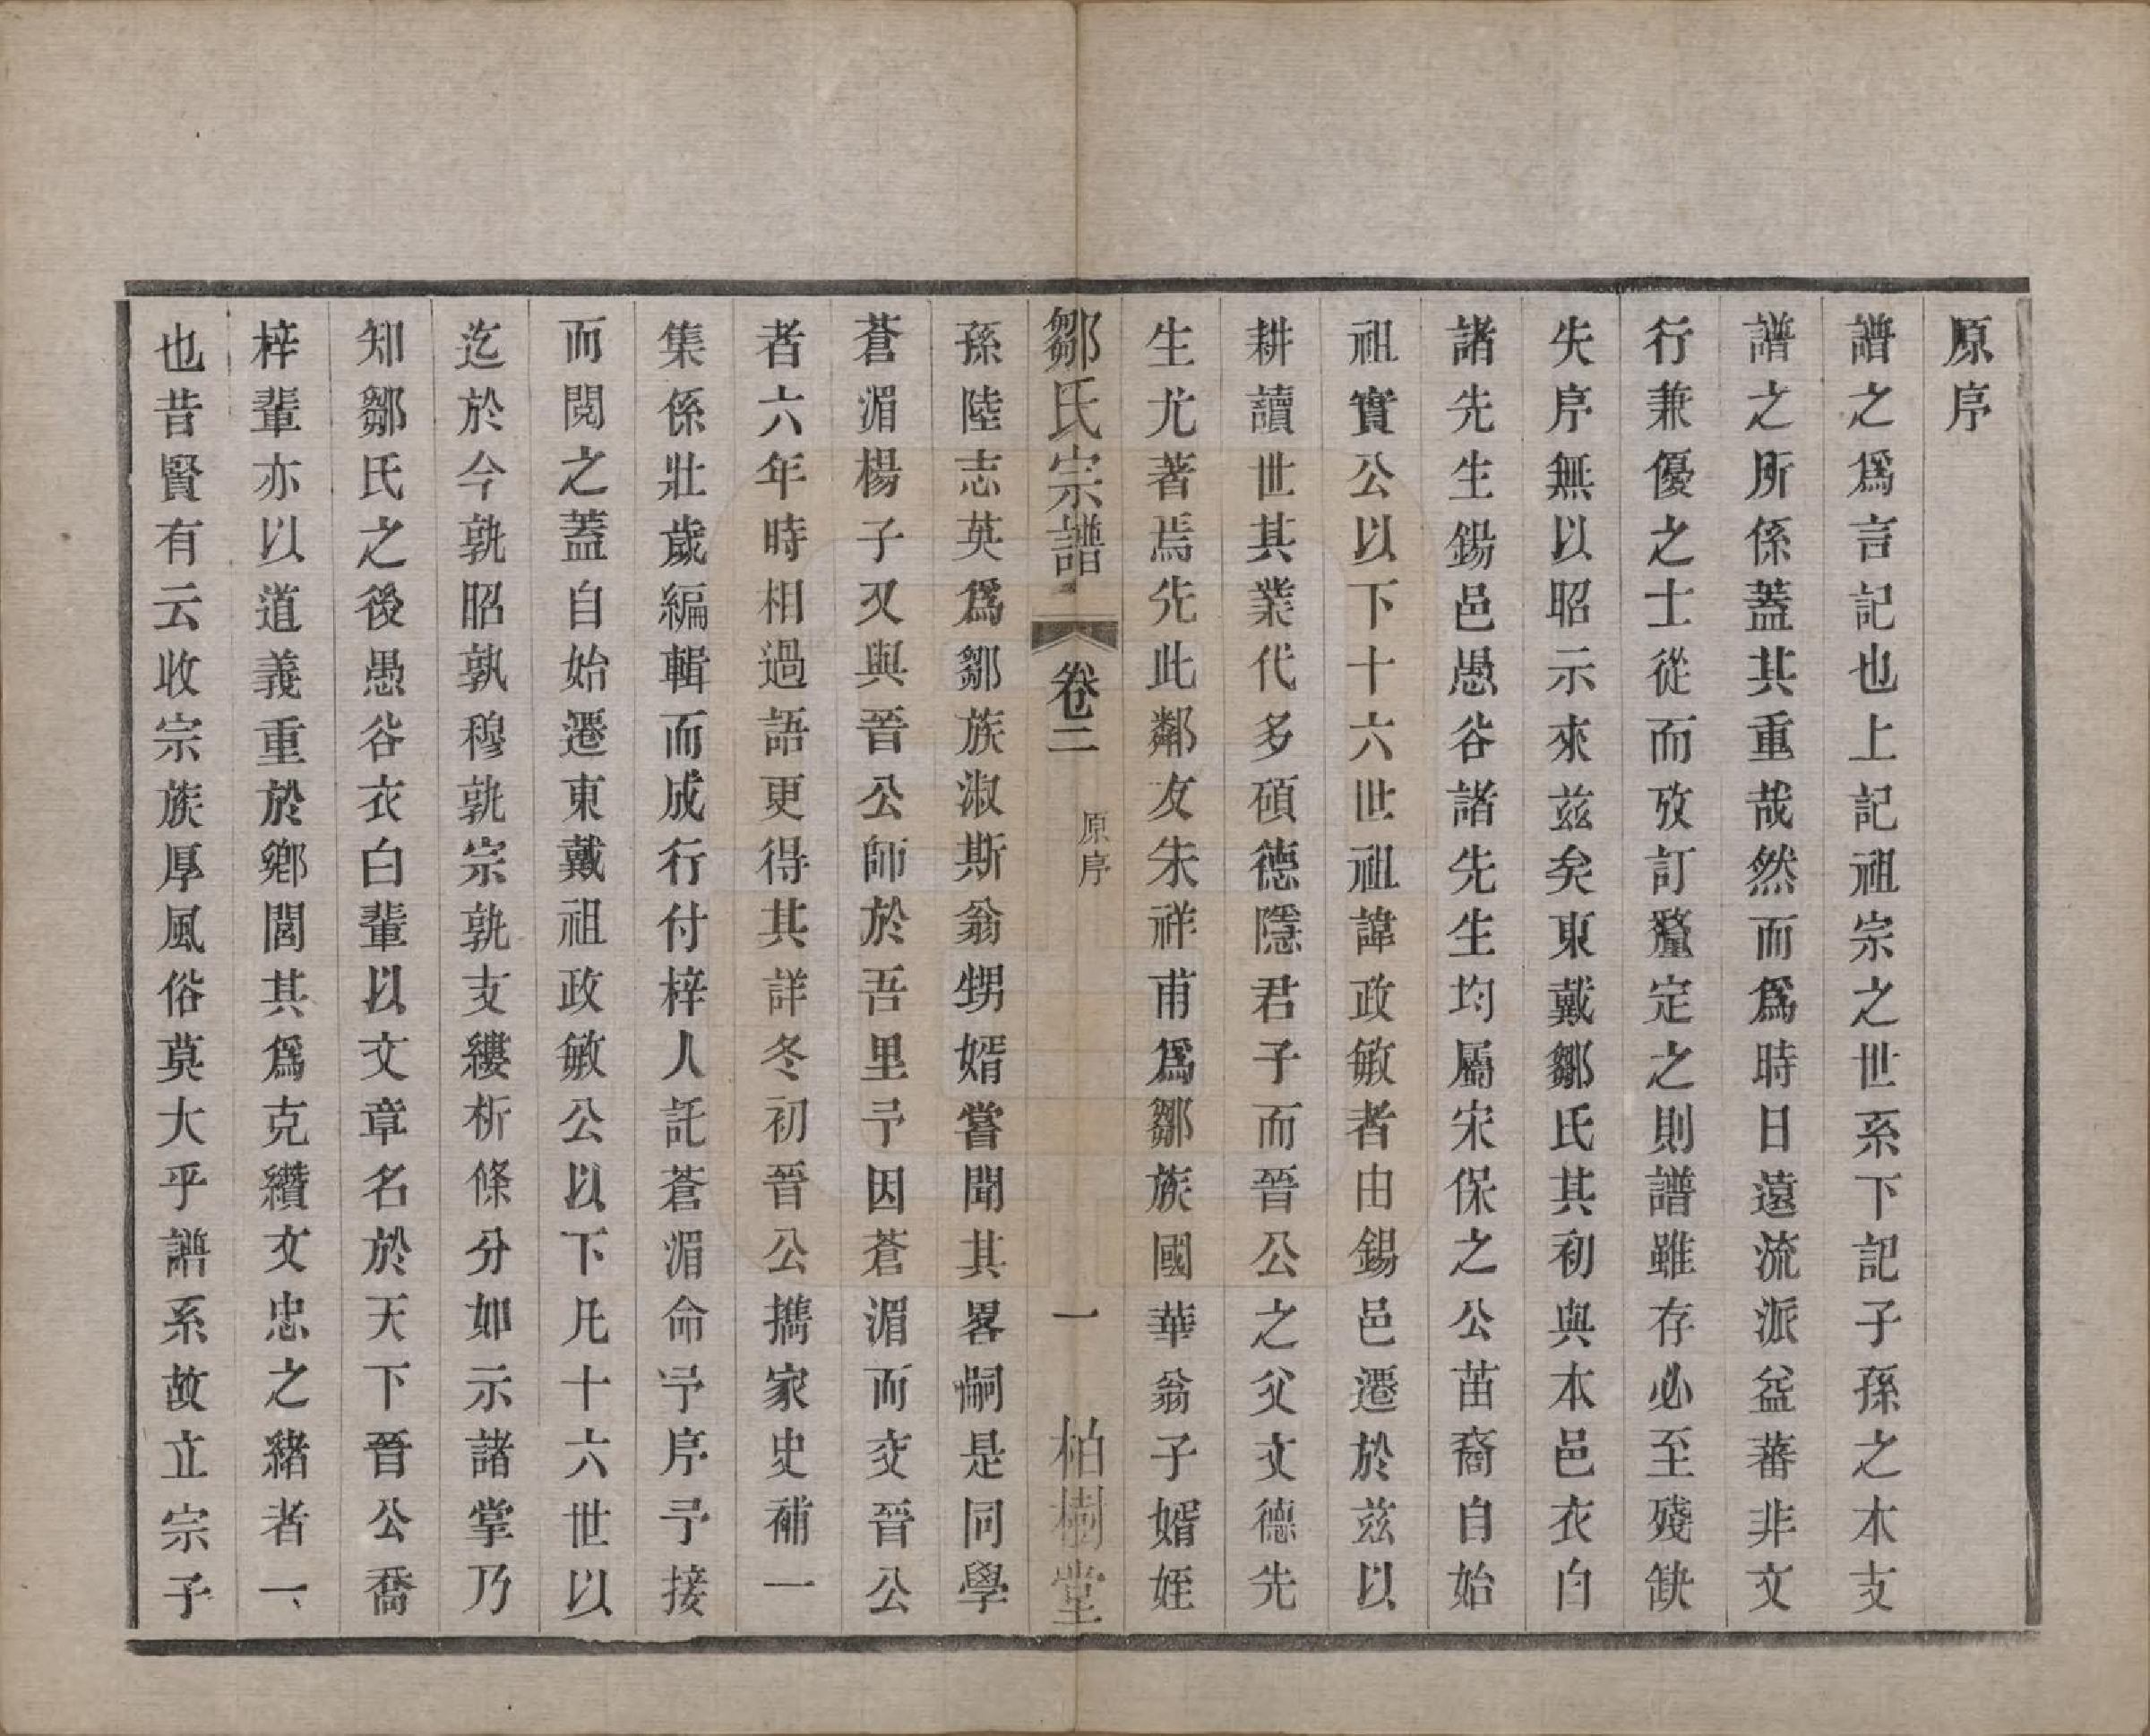 原序
譜之爲言記也上記祖宗之世系下記子孫之木支
譜之所係蓋其重哉然而爲時日遠流派益蕃非文
行兼優之士從而攷訂釐定之則譜雖存必至殘缺
失序無以昭示來茲矣東戴鄒氏其初與本邑衣白
諸先生錫邑愚谷諸先生均屬宋保之公苗裔自始
祖實公以下十六世祖諱政敏者由錫邑遷於茲以
耕讀世其業代多碩德隱君子而晉公之父文德先
生尤著焉先此鄰友朱祥甫爲鄒族國華翁子婿姪
鄒氏宗譜 卷二 原序 一 柏樹堂
孫陸志英爲鄒族淑斯翁甥婿嘗聞其畧嗣是同學
蒼湄楊子又與晉公師於吾里予因蒼湄而交晉公
者六年時相過語更得其詳冬初晉公攜家史補一
集係壯歲編輯而成行付梓人託蒼湄命予序予接
而閱之蓋自始遷東戴祖政敏公以下凡十六世以
迄於今孰昭孰穆孰宗孰支縷析條分如示諸掌乃
知鄒氏之後愚谷衣白輩以文章名於天下晉公喬
梓輩亦以道義重於鄉閭其爲克纘文忠之緒者一
也昔賢有云收宗族厚風俗莫大乎譜系故立宗子